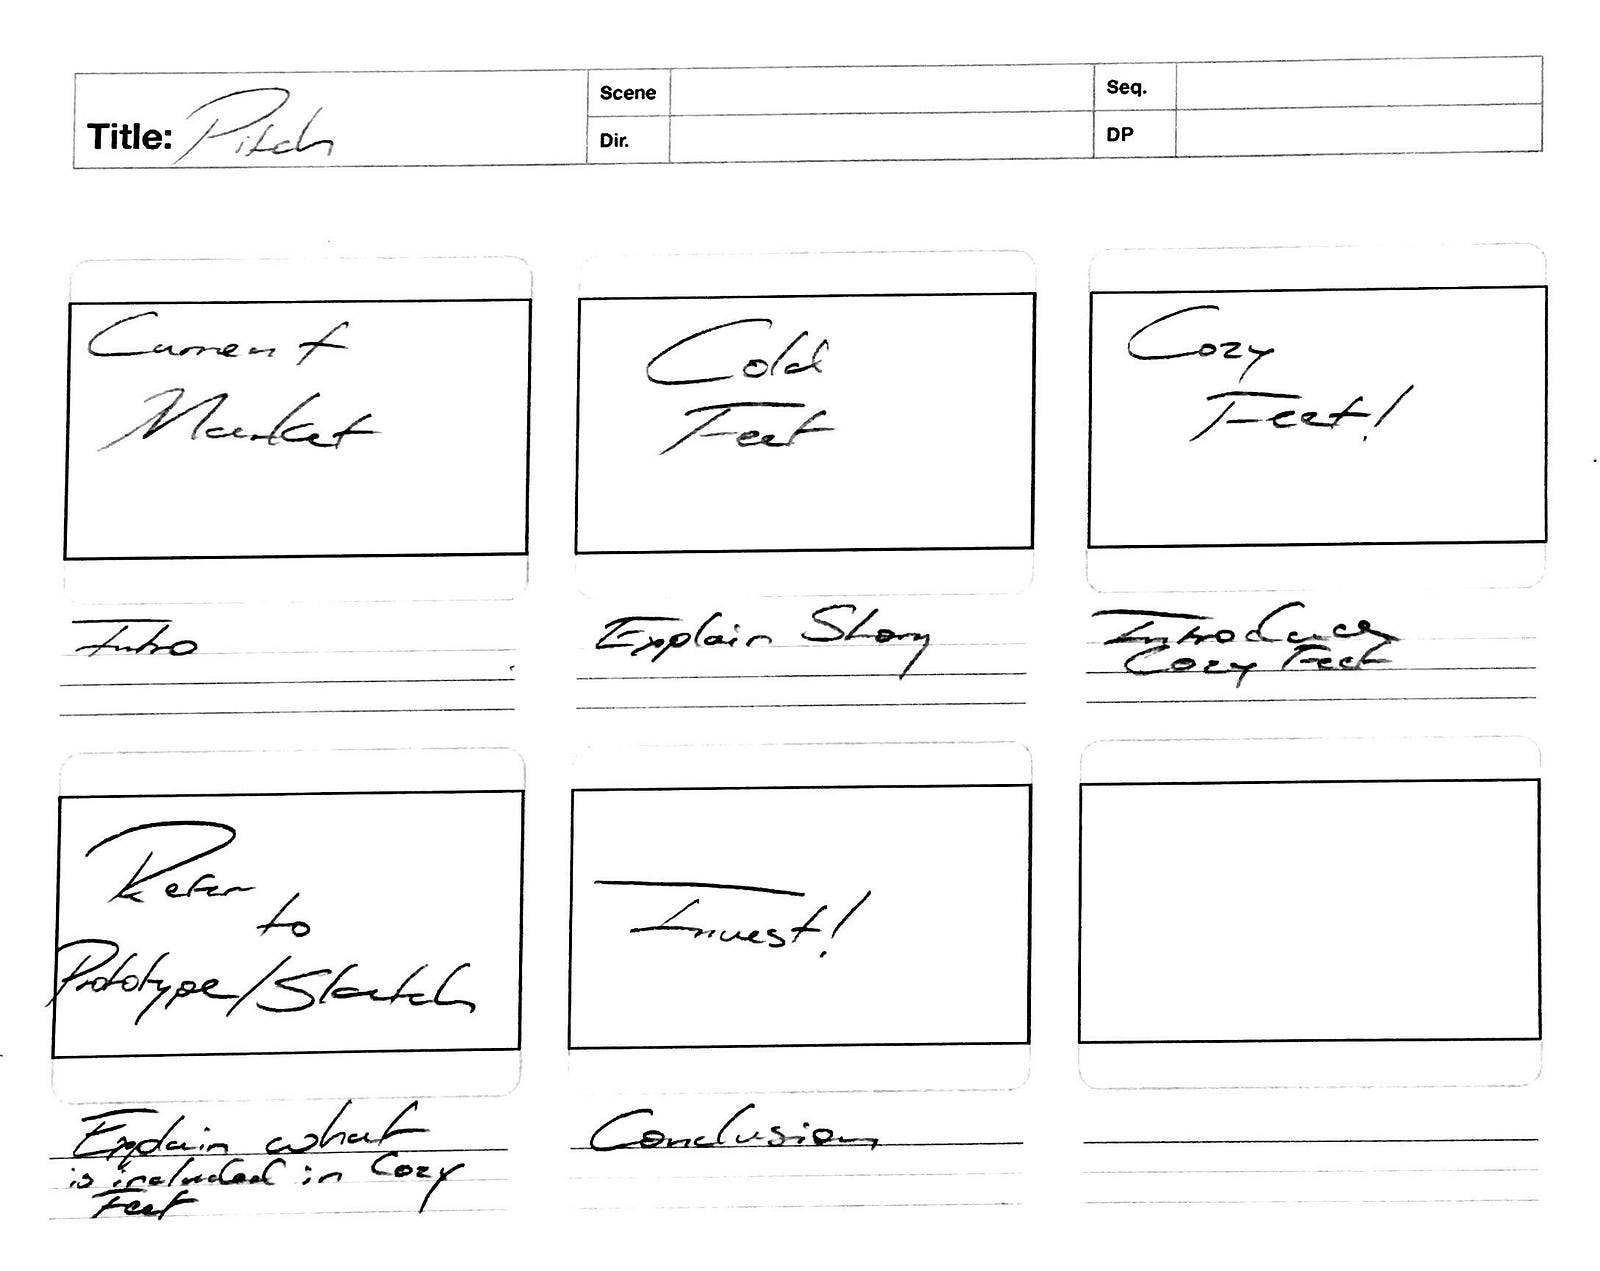 Title: Pitch
Scene
Seq.
Dir.
DP
Current
Market
Cold
Feet
Cozy
Feet!
Intro
Explain Story
Introduce
Cozy Feet
Refer
to
Prototype/Sketch
Invest!
Explain what
is included in Cozy
Feet
Conclusion